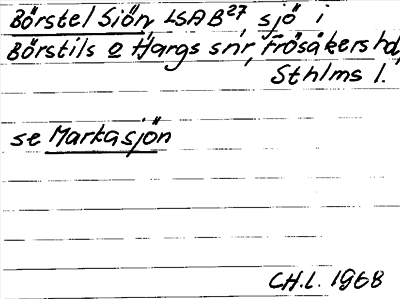 Börstel Siön, LSA B27, sjö i
Börstils o Hargs snr, Frösåkers hd,
Sthlms l.
se Markasjön
CH.L. 1968